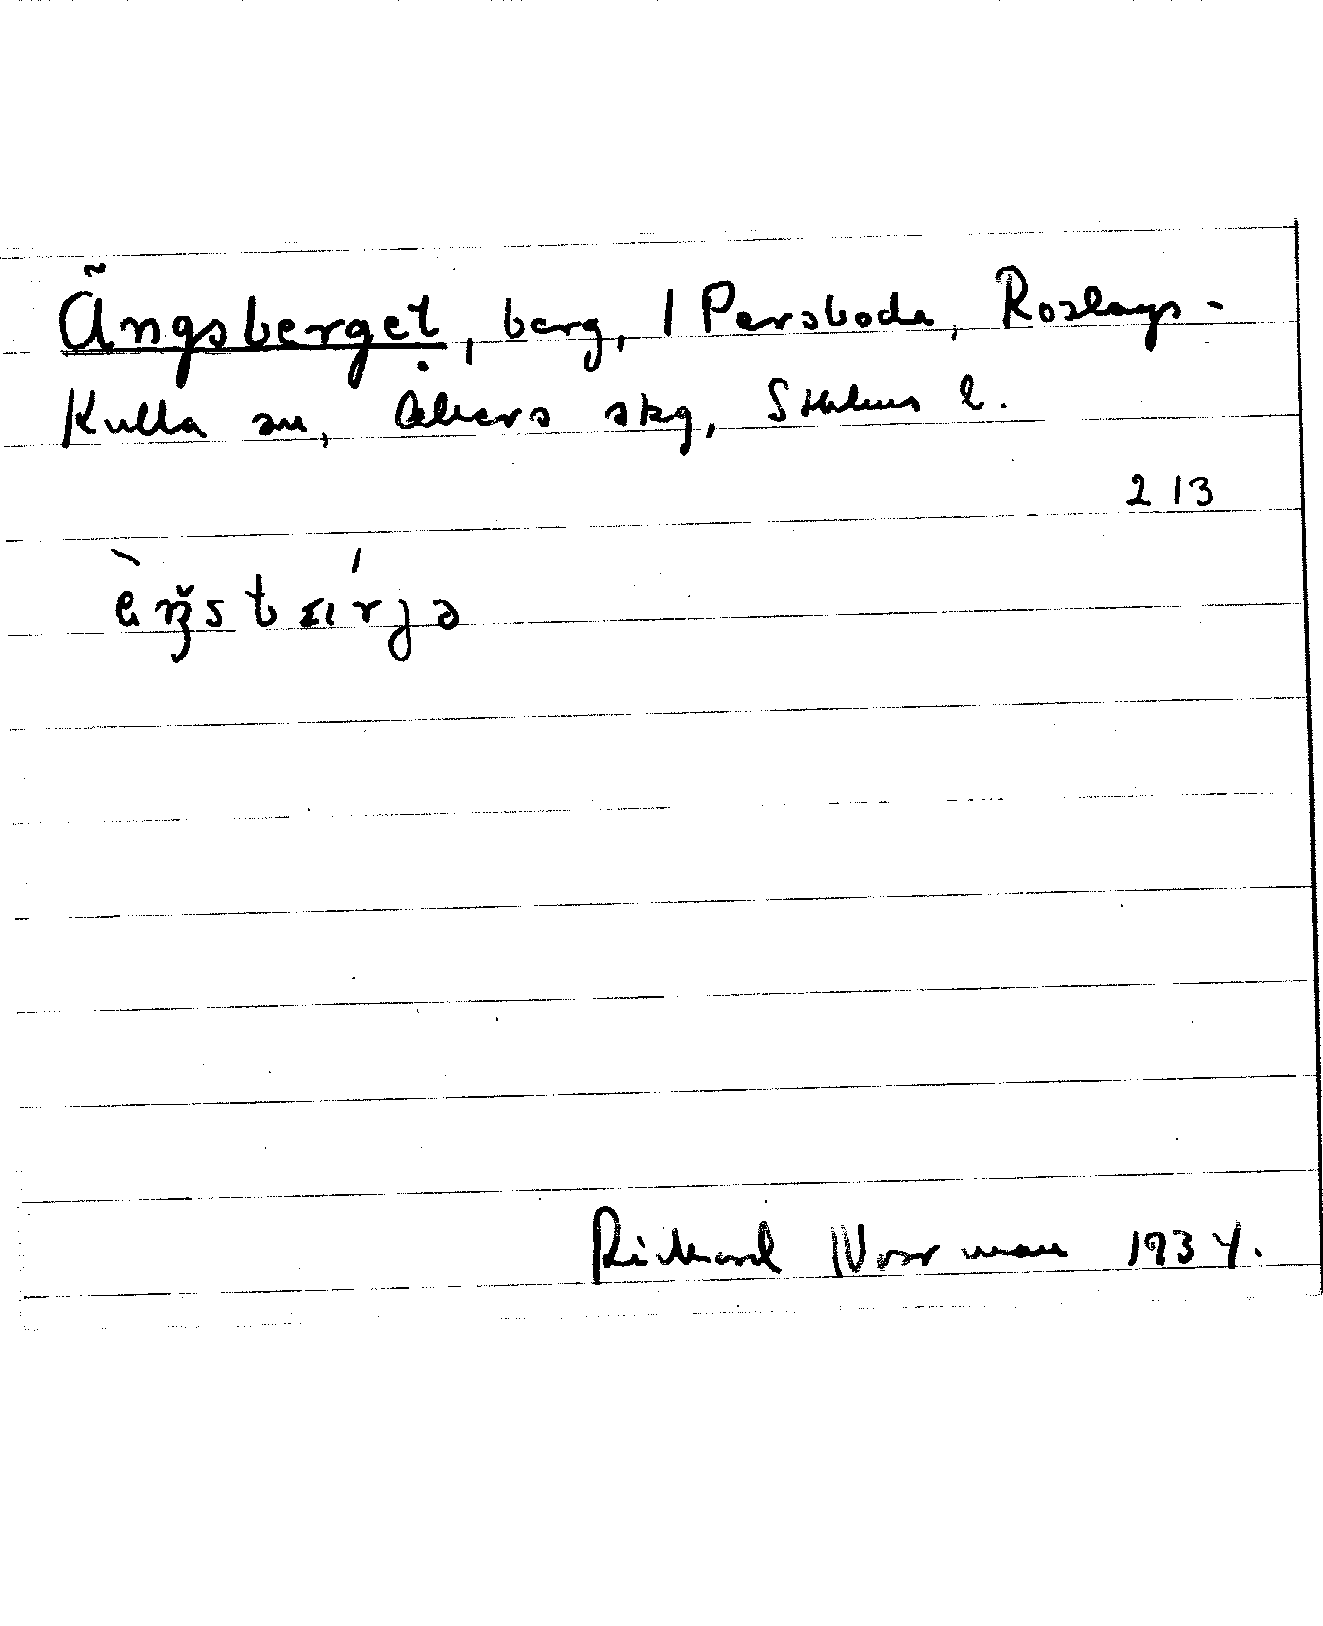 Ängsberget, berg, i Persboda, Roslags-
Kulla sn, Åkers skg, Sthlms l.
213
Richard Norrman 1934.